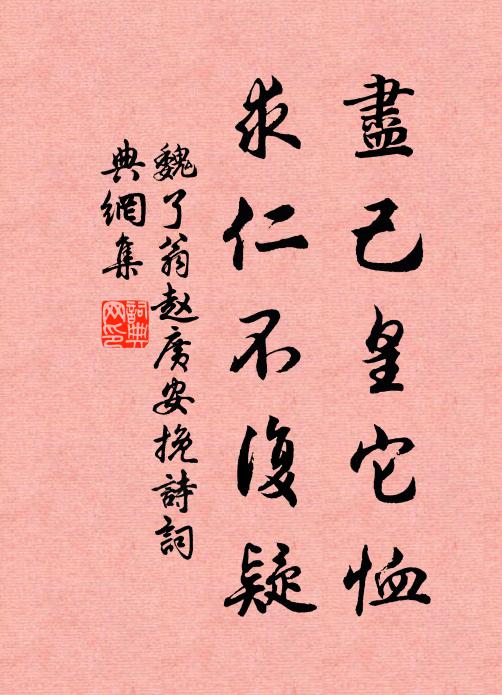 盡己皇它恤
求仁不復疑
魏了翁趙廣安挽詩詞
典網集
詞典网印